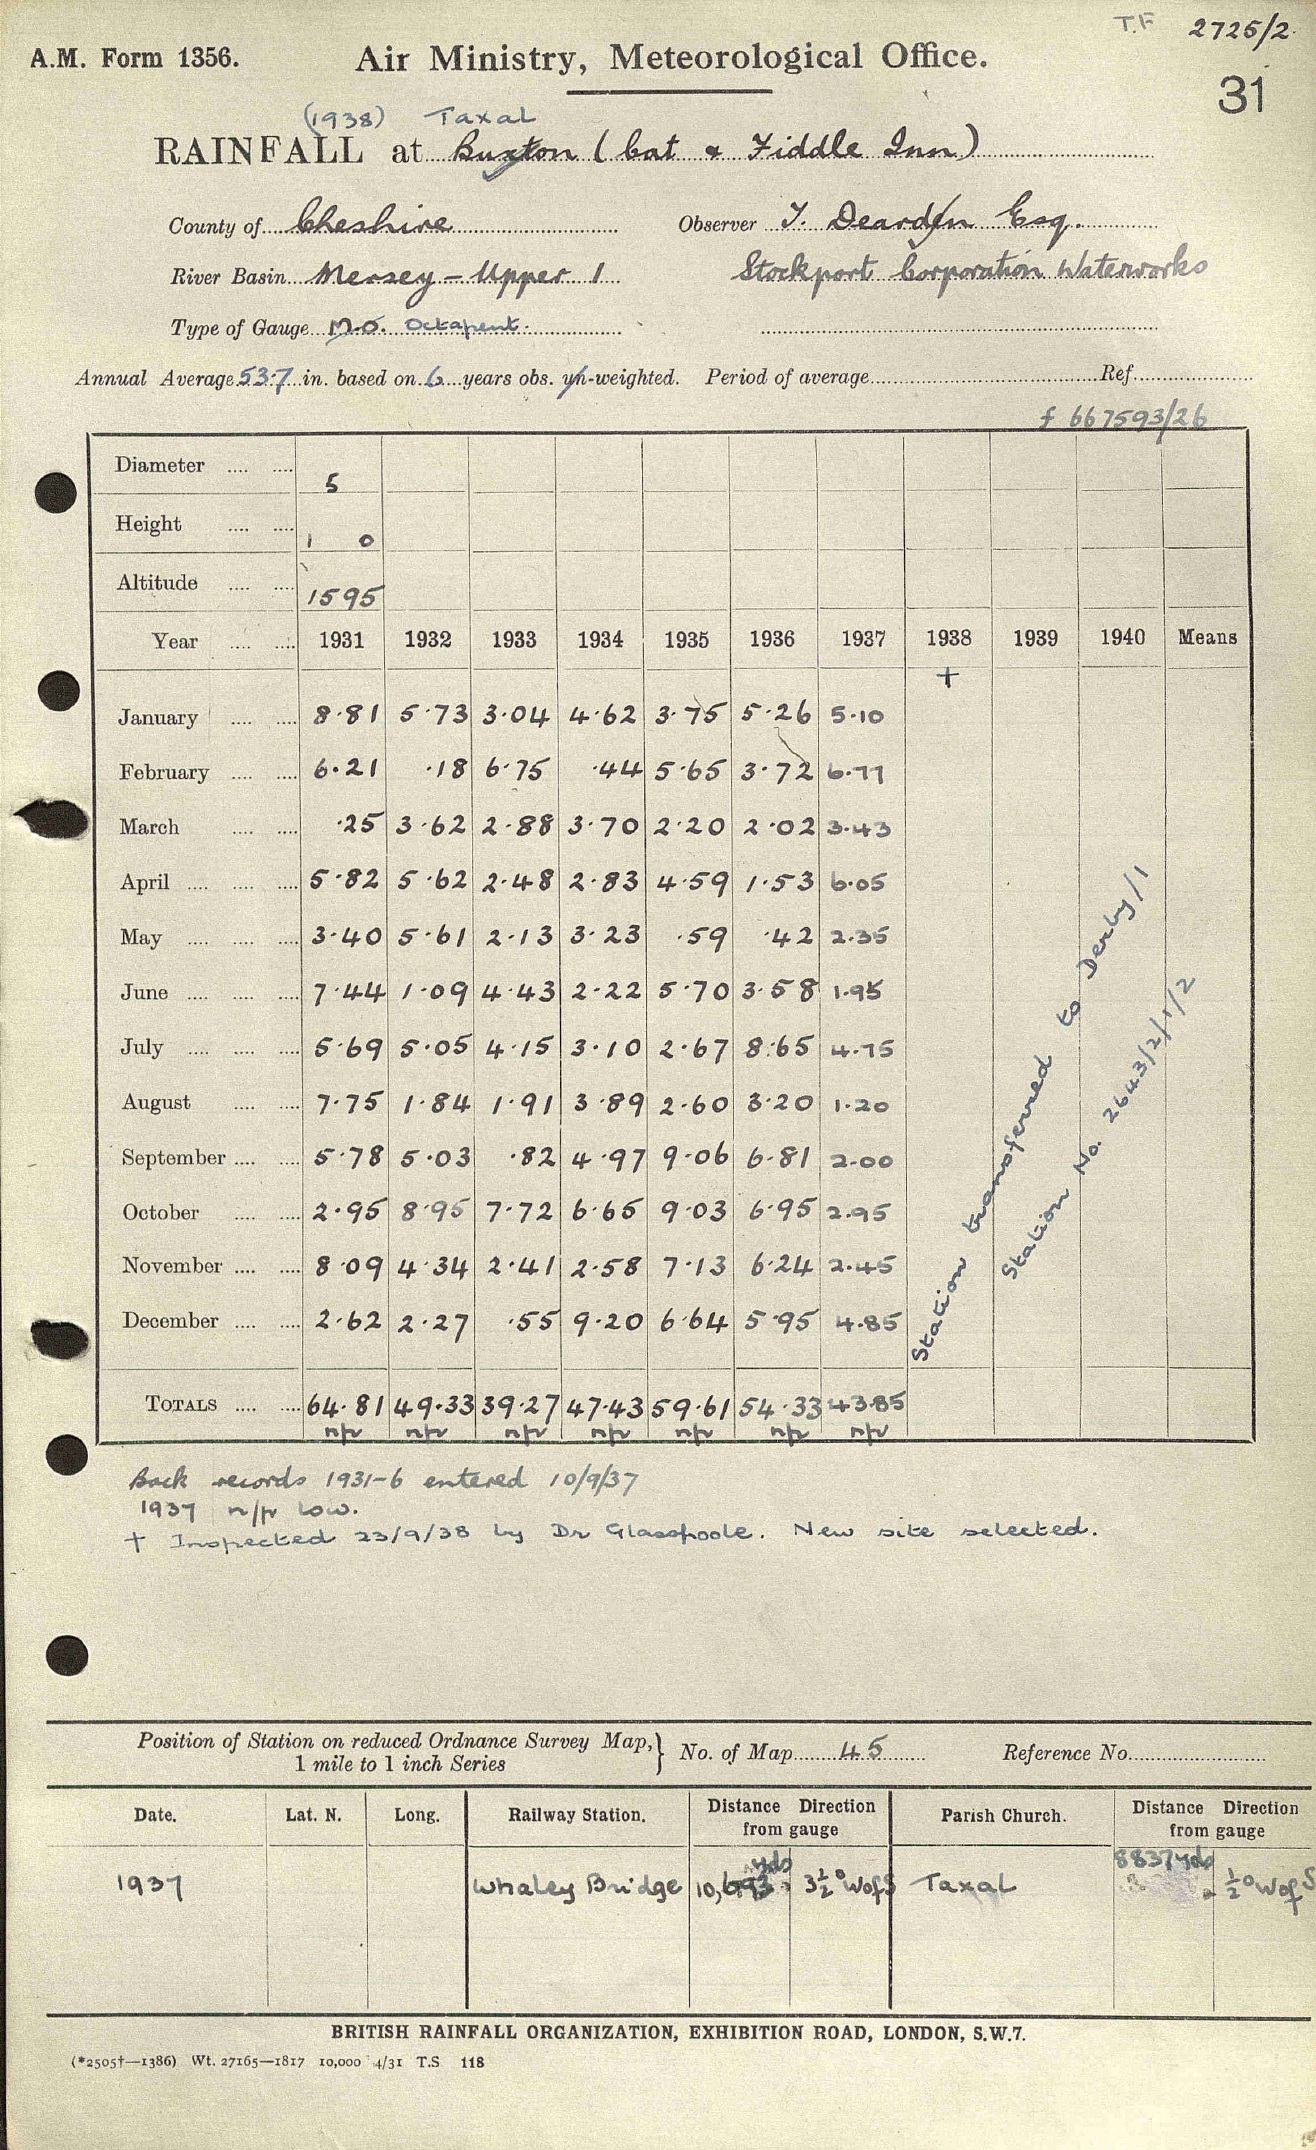 T.F 2725/2.
A.M. Form 1356. Air Ministry, Meteorological Office.
31
(1938) Taxal
RAINFALL at Buxton (Cat & Fiddle Inn)
County of Cheshire Observer T. Dearden Esq.
River Basin Mersey - Upper 1 Stockport Corporation Waterworks
Type of Gauge M.O. Octapent.
Annual Average 53.7 in. based on 6 years obs. un-weighted. Period of average Ref.
f 667593/26
Diameter 5
Height 1 0
Altitude 1595
Year 1931 1932 1933 1934 1935 1936 1937 1938 1939 1940 Means
+
January 8.81 5.73 3.04 4.62 3.75 5.26 5.10
February 6.21 .18 6.75 .44 5.65 3.72 6.77
March .25 3.62 2.88 3.70 2.20 2.02 3.43
April 5.82 5.62 2.48 2.83 4.59 1.53 6.05
May 3.40 5.61 2.13 3.23 .59 .42 2.35
June 7.44 1.09 4.43 2.22 5.70 3.58 1.95
July 5.69 5.05 4.15 3.10 2.67 8.65 4.75
August 7.75 1.84 1.91 3.89 2.60 3.20 1.20
September 5.78 5.03 .82 4.97 9.06 6.81 2.00
October 2.95 8.95 7.72 6.65 9.03 6.95 2.95
November 8.09 4.34 2.41 2.58 7.13 6.24 2.45
December 2.62 2.27 .55 9.20 6.64 5.95 4.85
Station transferred to Derby/1
Station No. 2643/2/1/2
TOTALS 64.81 49.33 39.27 47.43 59.61 54.33 43.85
n/r n/r n/r n/r n/r n/r n/r
Back records 1931-6 entered 10/9/37
1937 n/r low.
+ Inspected 23/9/38 by Dr Glasspoole. New site selected.
Position of Station on reduced Ordnance Survey Map, } No. of Map 45 Reference No.
1 mile to 1 inch Series
Date. Lat. N. Long. Railway Station. Distance Direction from gauge Parish Church. Distance Direction from gauge
yds 8837 yds
1937 Whaley Bridge 10,693 3½° W of S Taxal ½° W of S
BRITISH RAINFALL ORGANIZATION, EXHIBITION ROAD, LONDON, S.W.7.
(*2505†—1386) Wt. 27165—1817 10,000 4/31 T.S 118